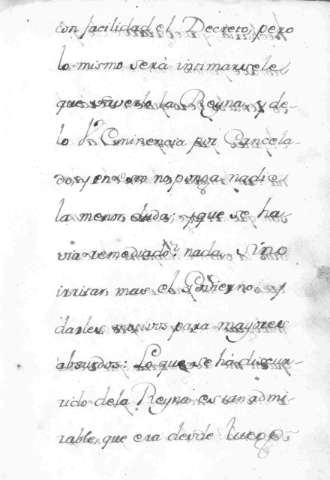 con facilidad el Decreto, pero
lo mismo será intimarsele
que verlo la Reyna, y de-
lo Eminencia por Cancela-
do, y en no ponga nadie
la menor duda; y que se ha
via remediado nada, sino
irritar mas el Govierno, y
darles para mayores
absurdos: Lo que se ha discur-
rido de la Reyna es tan admi-
rable, que era desde luego